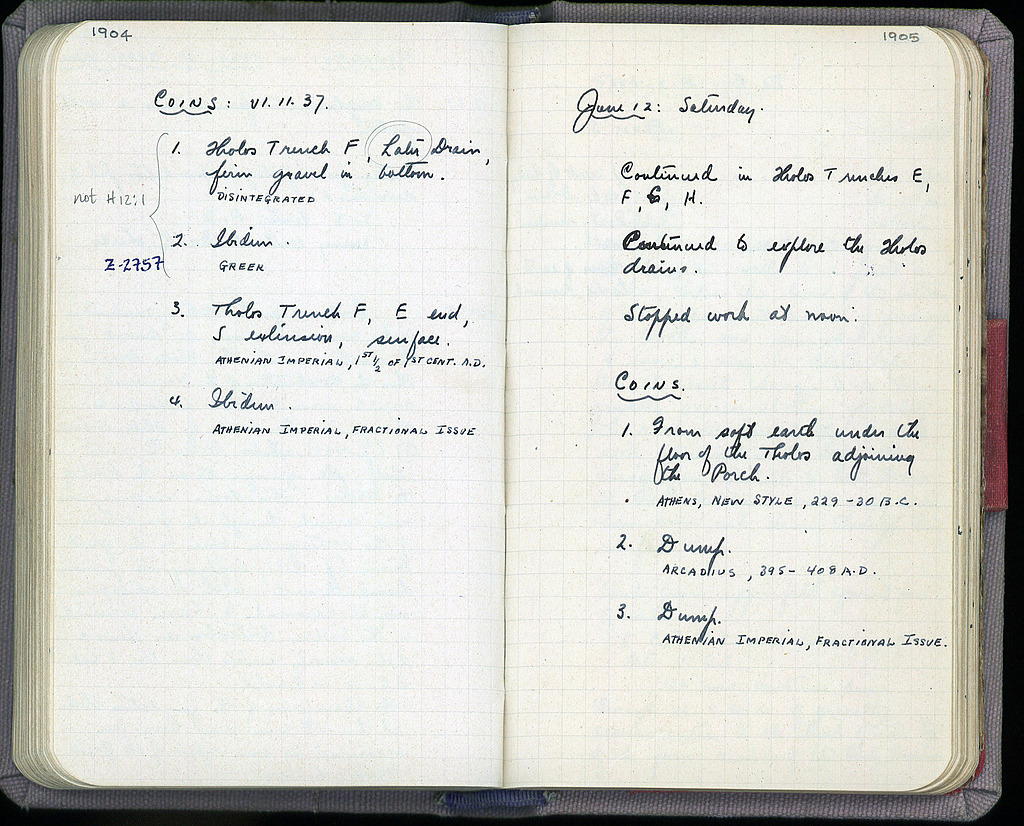 1904
COINS: VI. 11. 37.
1. Tholos Trench F, Late Drain,
firm gravel in bottom.
DISINTEGRATED
not H12:1
2. Ibidem.
Z-2757
GREEK
3. Tholos Trench F, E end,
S extension, surface.
ATHENIAN IMPERIAL, 1ST ½ OF 1ST CENT. A.D.
4. Ibidem.
ATHENIAN IMPERIAL, FRACTIONAL ISSUE
1905
June 12: Saturday.
Continued in Tholos Trenches E,
F, G, H.
Continued to explore the Tholos
drains.
Stopped work at noon.
COINS.
1. From soft earth under the
floor of the Tholos adjoining
the Porch.
ATHENS, NEW STYLE, 229-30 B.C.
2. Dump.
ARCADIUS, 395-408 A.D.
3. Dump.
ATHENIAN IMPERIAL, FRACTIONAL ISSUE.